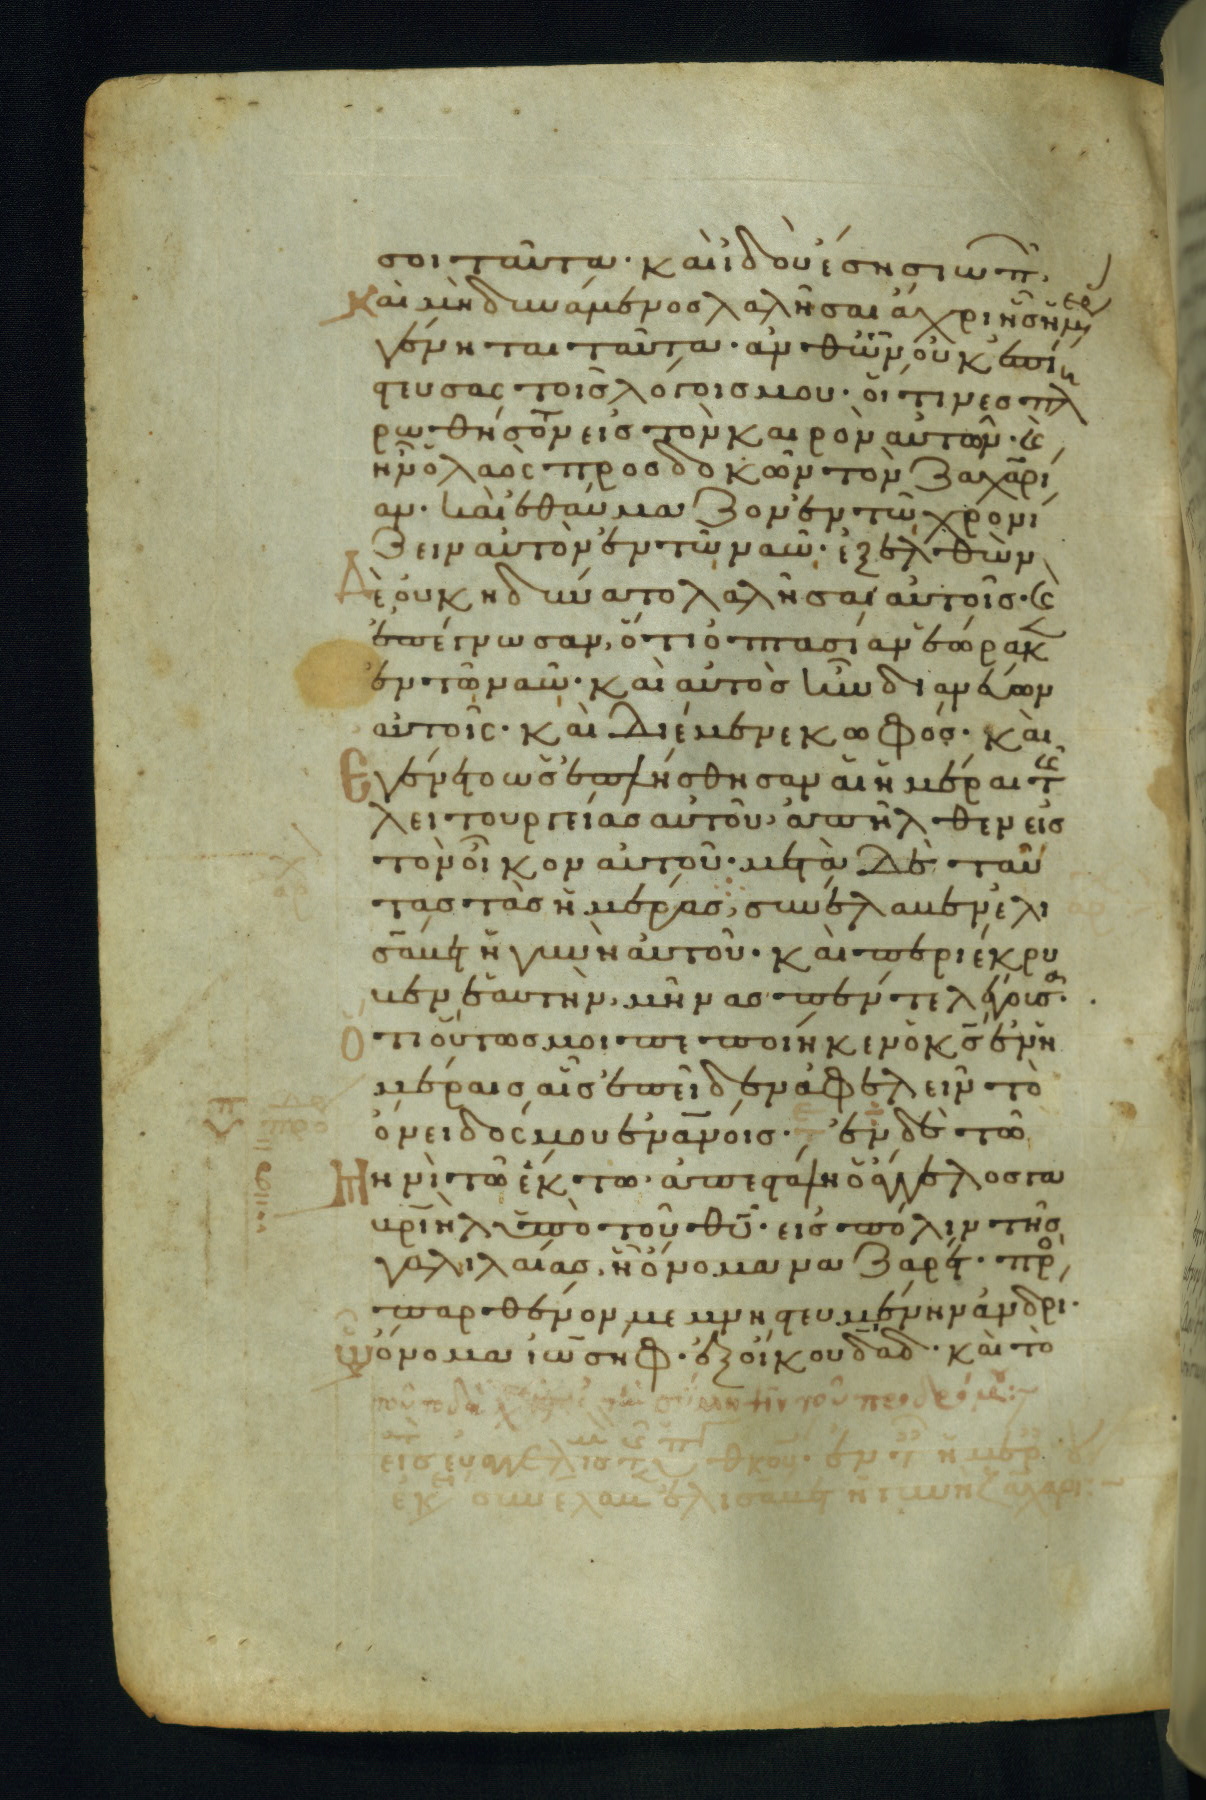 σοι ταῦτα· καὶ ἰδοὺ ἔση σιωπ
καὶ μὴ δυνάμενος λαλῆσαι ἄχρι ἧς ἡμερ
γένηται ταῦτα· ἀνθ ὧν οὐκ ἐπί
στευσας τοῖς λόγοις μου· οἵτινες πλη
ρωθήσονται εἰς τὸν καιρὸν αὐτῶν· καὶ
ἦν ὁ λαὸς προσδοκῶν τὸν Ζαχαρί
αν· καὶ ἐθαύμαζον ἐν τῷ χρονί
ζειν αὐτὸν ἐν τῷ ναῷ· ἐξελθὼν
δὲ οὐκ ἠδύνατο λαλῆσαι αὐτοῖς· καὶ
ἐπέγνωσαν, ὅτι ὀπτασίαν ἑώρακ
ἐν τῷ ναῷ· καὶ αὐτὸς ἦν διανεύων
αὐτοῖς· καὶ διέμενε κωφός· καὶ
Ἐγένετο ὡς ἐπλήσθησαν αἱ ἡμέραι τ
λειτουργείας αὐτοῦ, ἀπῆλθεν εἰς
τὸν οἶκον αὐτοῦ· μετὰ δὲ ταύ
τας τὰς ἡμέρας, συνέλαβεν ἐλι
σάβετ ἡ γυνὴ αὐτοῦ· καὶ περιέκρυ
βεν ἑαυτὴν, μῆνας πέντε λέγουσα·
Ὅτι οὕτως μοι πεποίηκεν ὁ κς ἐν ἡ
μέραις αἷς ἐπεῖδεν ἀφελεῖν τὸ
ὄνειδός μου ἐν ανοις· ἐν δὲ τῷ
Μηνὶ τῷ ἕκτω· ἀπεστάλη ὁ ἄγγελος γα
βριὴλ ὑπὸ τοῦ θυ· εἰς πόλιν τῆς
γαλιλαίας, ἧ ὄνομα ναζαρέτ· πρ
παρθένον μεμνηστευμένην ἀνδρί·
Ὧ ὄνομα ἰωσηφ· ἐξ οἴκου δαδ· καὶ τὸ